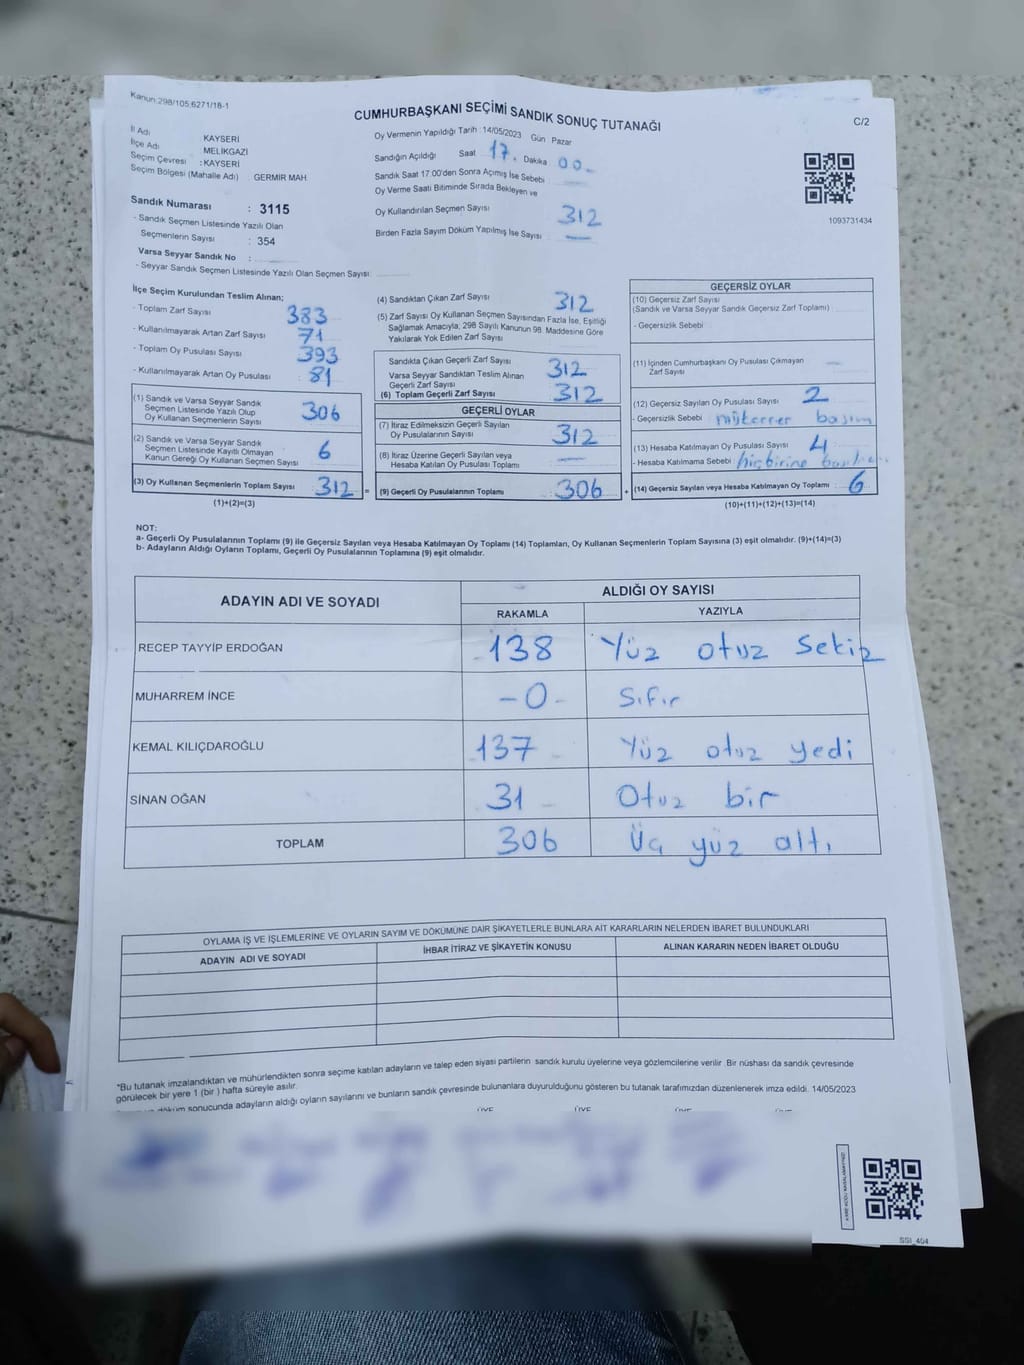 Kanun:298/105,6271/18-1
CUMHURBAŞKANI SEÇİMİ SANDIK SONUÇ TUTANAĞI
C/2
İl Adı KAYSERİ
İlçe Adı MELİKGAZİ
Seçim Çevresi : KAYSERİ
Seçim Bölgesi (Mahalle Adı) GERMİR MAH.
Sandık Numarası : 3115
- Sandık Seçmen Listesinde Yazılı Olan
Seçmenlerin Sayısı : 354
Varsa Seyyar Sandık No :
- Seyyar Sandık Seçmen Listesinde Yazılı Olan Seçmen Sayısı:
Oy Vermenin Yapıldığı Tarih :14/05/2023 Gün Pazar
Sandığın Açıldığı Saat 17. Dakika 00-
Sandık Saat 17:00'den Sonra Açılmış İse Sebebi
Oy Verme Saati Bitiminde Sırada Bekleyen ve
Oy Kullandırılan Seçmen Sayısı 312
Birden Fazla Sayım Döküm Yapılmış İse Sayısı —
1093731434
İlçe Seçim Kurulundan Teslim Alınan;
- Toplam Zarf Sayısı 383
- Kullanılmayarak Artan Zarf Sayısı 71
- Toplam Oy Pusulası Sayısı 393
- Kullanılmayarak Artan Oy Pusulası 81
(1) Sandık ve Varsa Seyyar Sandık
Seçmen Listesinde Yazılı Olup
Oy Kullanan Seçmenlerin Sayısı 306
(2) Sandık ve Varsa Seyyar Sandık
Seçmen Listesinde Kayıtlı Olmayan
Kanun Gereği Oy Kullanan Seçmen Sayısı 6
(3) Oy Kullanan Seçmenlerin Toplam Sayısı 312 =
(1)+(2)=(3)
(4) Sandıktan Çıkan Zarf Sayısı 312
(5) Zarf Sayısı Oy Kullanan Seçmen Sayısından Fazla İse, Eşitliği
Sağlamak Amacıyla; 298 Sayılı Kanunun 98. Maddesine Göre
Yakılarak Yok Edilen Zarf Sayısı
Sandıkta Çıkan Geçerli Zarf Sayısı 312
Varsa Seyyar Sandıktan Teslim Alınan
Geçerli Zarf Sayısı
(6) Toplam Geçerli Zarf Sayısı 312
GEÇERLİ OYLAR
(7) İtiraz Edilmeksizin Geçerli Sayılan
Oy Pusulalarının Sayısı 312
(8) İtiraz Üzerine Geçerli Sayılan veya
Hesaba Katılan Oy Pusulası Toplamı —
(9) Geçerli Oy Pusulalarının Toplamı 306 +
GEÇERSİZ OYLAR
(10) Geçersiz Zarf Sayısı
(Sandık ve Varsa Seyyar Sandık Geçersiz Zarf Toplamı)
- Geçersizlik Sebebi
(11) İçinden Cumhurbaşkanı Oy Pusulası Çıkmayan
Zarf Sayısı —
(12) Geçersiz Sayılan Oy Pusulası Sayısı 2
- Geçersizlik Sebebi mükerrer basım
(13) Hesaba Katılmayan Oy Pusulası Sayısı 4
- Hesaba Katılmama Sebebi hiçbirine
(14) Geçersiz Sayılan veya Hesaba Katılmayan Oy Toplamı 6
(10)+(11)+(12)+(13)=(14)
NOT:
a- Geçerli Oy Pusulalarının Toplamı (9) ile Geçersiz Sayılan veya Hesaba Katılmayan Oy Toplamı (14) Toplamları, Oy Kullanan Seçmenlerin Toplam Sayısına (3) eşit olmalıdır. (9)+(14)=(3)
b- Adayların Aldığı Oyların Toplamı, Geçerli Oy Pusulalarının Toplamına (9) eşit olmalıdır.
ADAYIN ADI VE SOYADI
ALDIĞI OY SAYISI
RAKAMLA YAZIYLA
RECEP TAYYİP ERDOĞAN 138 Yüz otuz sekiz
MUHARREM İNCE -0- Sıfır
KEMAL KILIÇDAROĞLU 137 Yüz otuz yedi
SİNAN OĞAN 31 Otuz bir
TOPLAM 306 Üç yüz altı
OYLAMA İŞ VE İŞLEMLERİNE VE OYLARIN SAYIM VE DÖKÜMÜNE DAİR ŞİKAYETLERLE BUNLARA AİT KARARLARIN NELERDEN İBARET BULUNDUKLARI
ADAYIN ADI VE SOYADI İHBAR İTİRAZ VE ŞİKAYETİN KONUSU ALINAN KARARIN NEDEN İBARET OLDUĞU
*Bu tutanak imzalandıktan ve mühürlendikten sonra seçime katılan adayların ve talep eden siyasi partilerin sandık kurulu üyelerine veya gözlemcilerine verilir. Bir nüshası da sandık çevresinde
görülecek bir yere 1 (bir ) hafta süreyle asılır.
döküm sonucunda adayların aldığı oyların sayılarını ve bunların sandık çevresinde bulunanlara duyurulduğunu gösteren bu tutanak tarafımızdan düzenlenerek imza edildi. 14/05/2023
ÜYE ÜYE ÜYE ÜYE
SSI_404